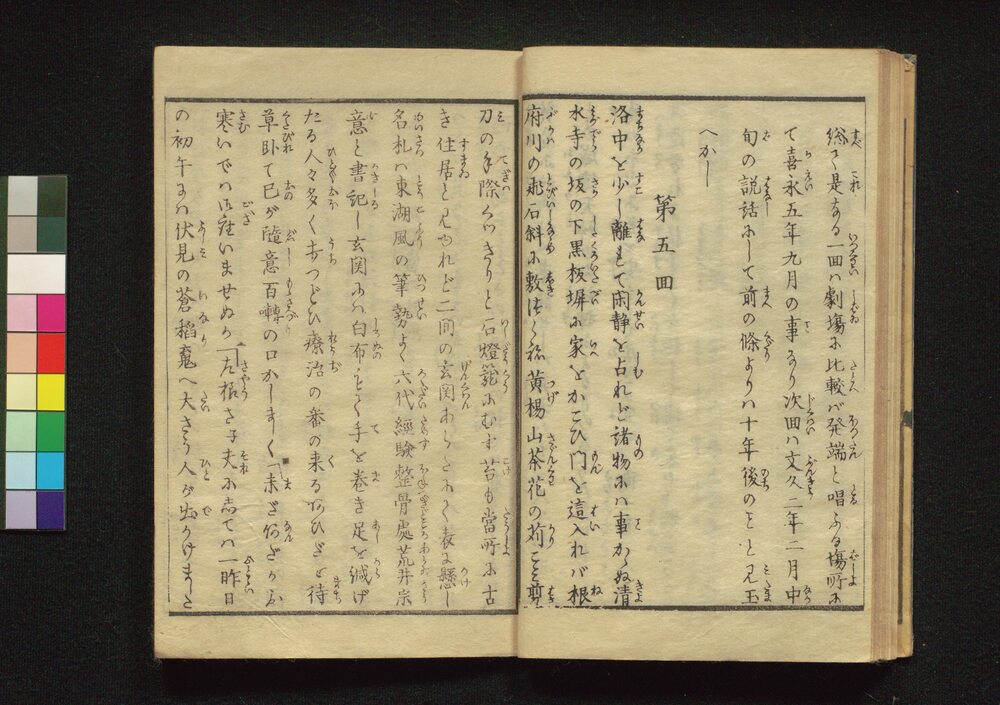 総て是までの一回は劇場に比較ば発端と唱ふる場所に
て喜永五年九月の事なり次回は文久二年二月中
旬の説話にして前の條よりは十年後のことゝ見玉
へかし
第五回
洛中を少し離れて閑静を占れど諸物には事かゝぬ清
水寺の坂の下黒板塀に家をかこひ門を這入れば根
府川の飛石斜に敷
黄楊山茶花の苅こみ剪
刀の手際くつきりと石燈籠にむす苔も當所に古
き住居と見ゆれど二間の玄関
表に懸し
名札は東湖風の筆勢よく六代經験整骨處荒井宗
意と書記し玄関には白布
手を巻き足を縅げ
たる人々多くつどひ療治の番の来る
待
草臥て己が隨意百囀の口かしまし
寒いではム座いませぬか「左様さ子夫に志ては一昨日
の初午には伏見の蒼稲魂へ大さう人が出かけました